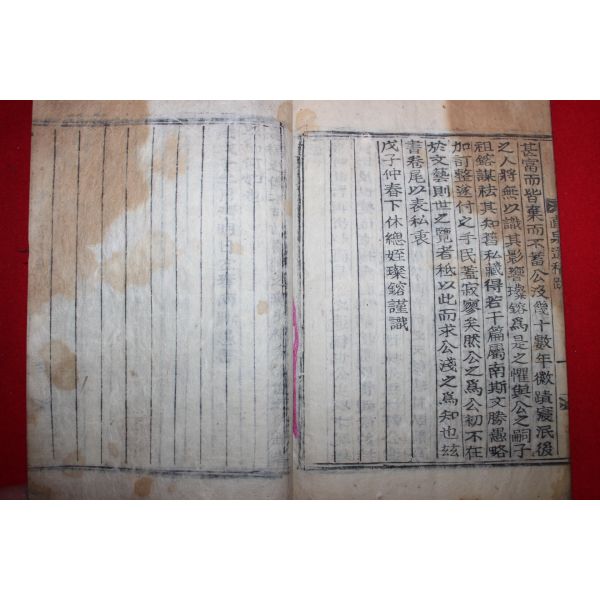 甚富而皆棄而不蓄公沒幾十數年徽蹟寢泯後
之人將無以識其影響璨鎔爲是之懼與公之嗣子
祖鎔謀袪其知舊私藏得若干篇屬南斯文勝愚略
加訂整遂付之手民蓋寂廖矣然公之爲公初不在
於文藝則世之覽者秪以此而求公淺之爲知也玆
書卷尾以表私衷
戊子仲春下休總姪璨鎔謹識